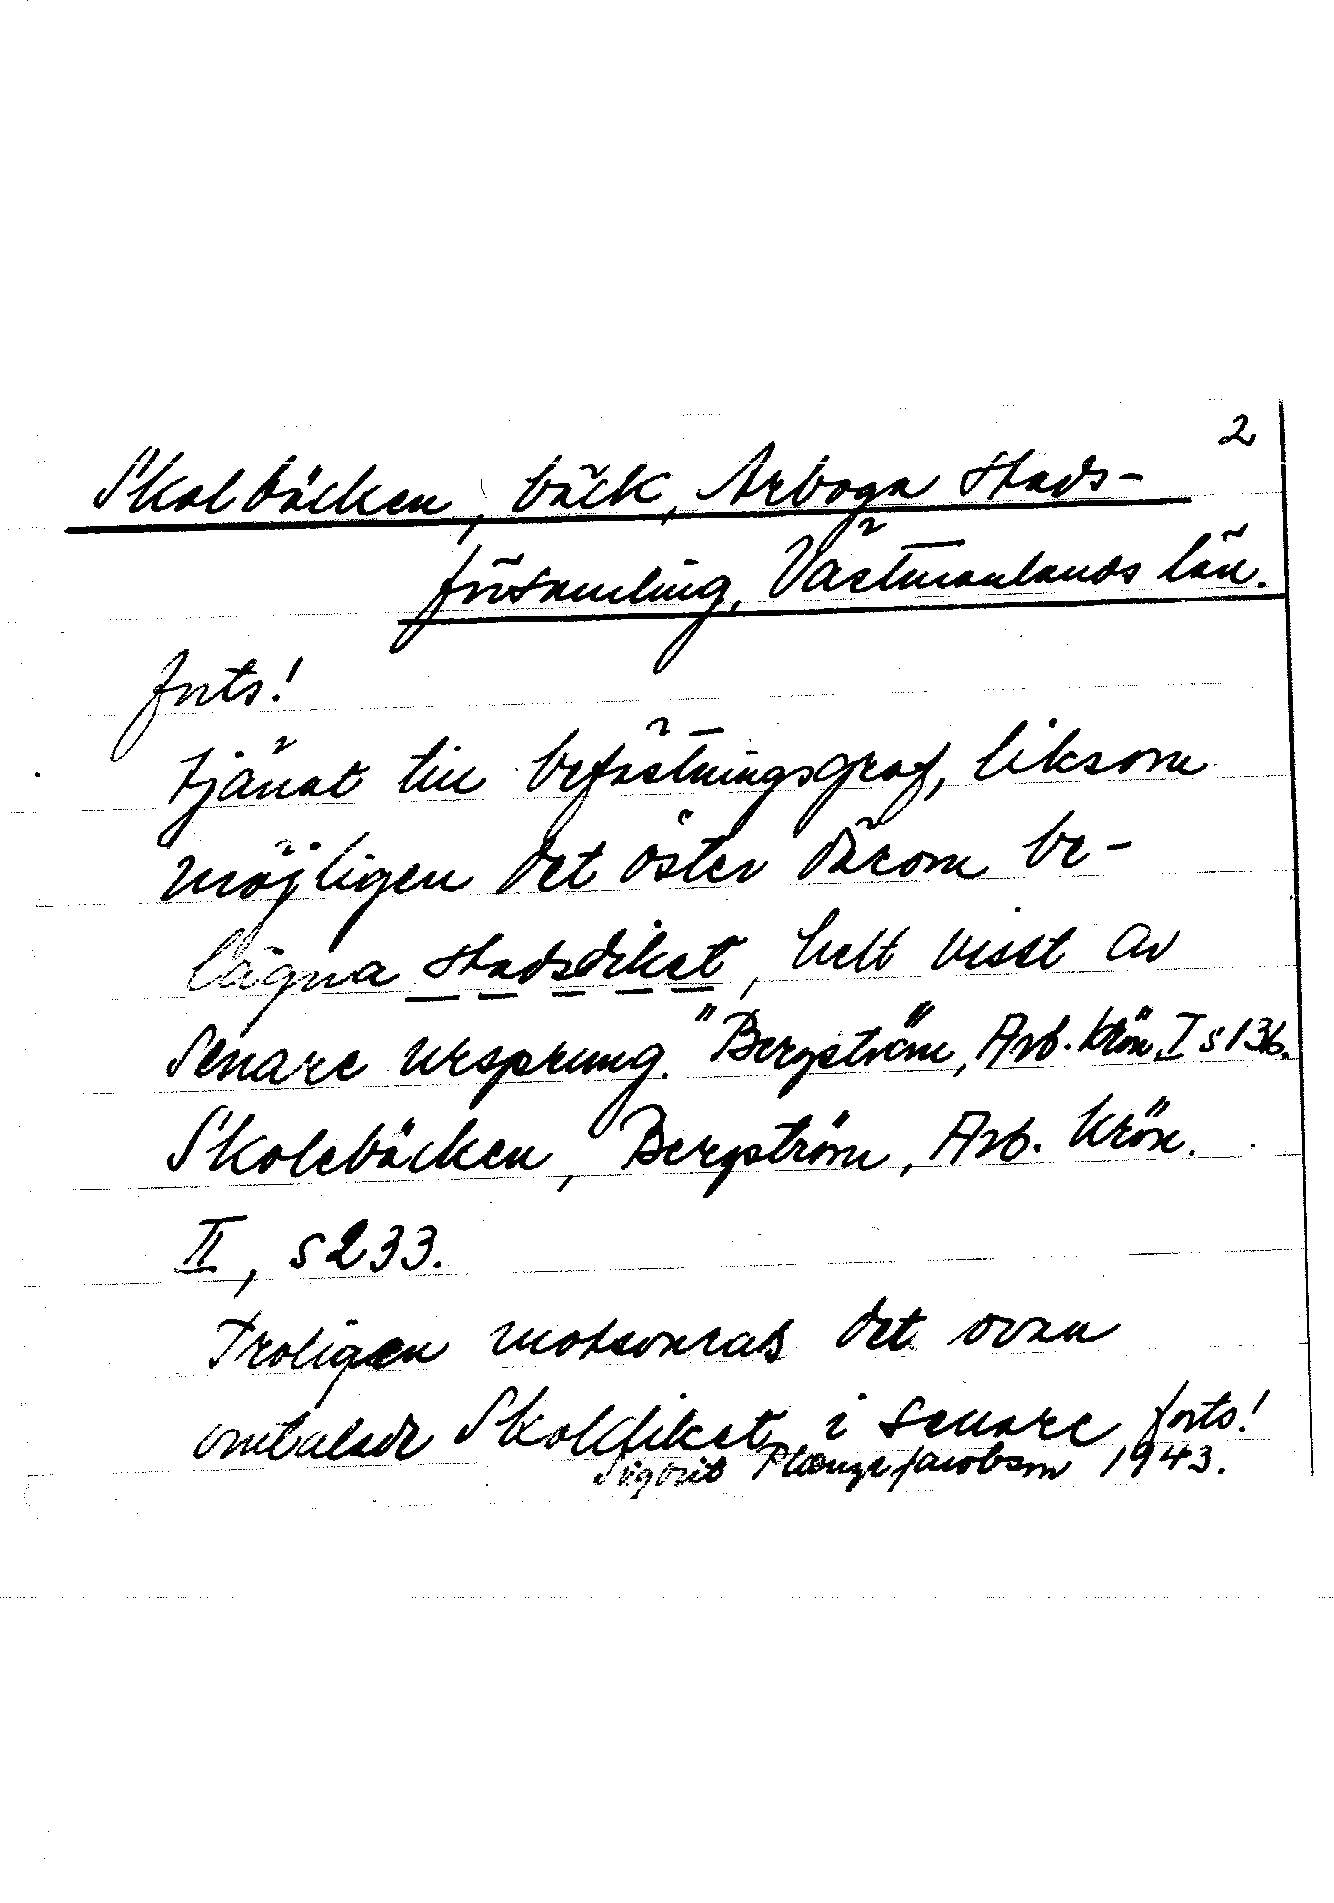 2
Skolbäcken, bäck, Arboga stads-
församling, Västmanlands län.
forts!
tjänat till befästningsgraf, liksom
möjligen det öster därom be-
lägna stadsdiket, helt visst av
senare ursprung." Bergström, Arb. Krön. I s 136.
Skolebäcken, Bergström, Arb. Krön.
II, s 233.
Troligen motsvaras det ovan
omtalade Skoldiket i senare forts!
Sigbrit Plænge Jacobson 1943.